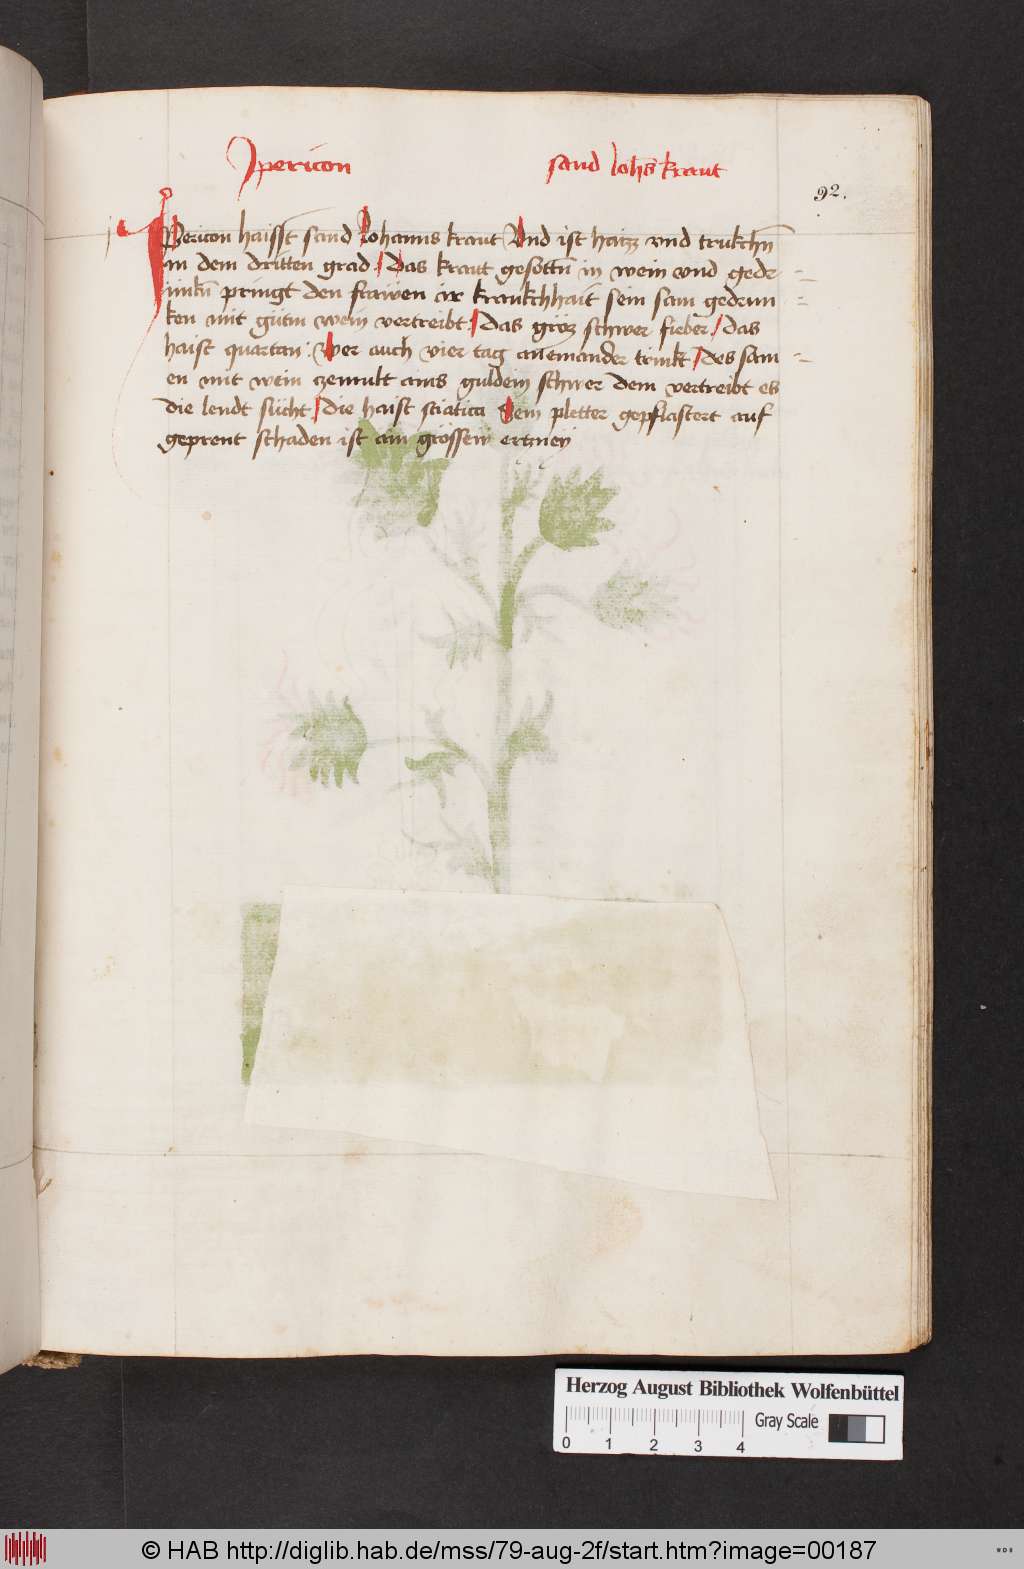 Ipericon sand Joh̄s kraut
92.
IPericon haisst sand Johanns kraut Vnd ist haitz vnd trukchn̄
in dem dritten grad / Das kraut gesottn̄ in wein vnd gedr
unkn̄ pringt den frawen ir krankchhait sein sam gedrun
ken mit gūtm wein vertreibt / das gröz schwer fieber / das
haist quartan Wer auch vier tag aneinander trinkt / des sam
en mit wein zemult ains guldein schwer dem vertreibt es
die lendt sücht / die haist sciatica Sein pletter gepflastert auf
geprent schaden ist ain grössew ertzney
Herzog August Bibliothek Wolfenbüttel
Gray Scale
0 1 2 3 4
© HAB http://diglib.hab.de/mss/79-aug-2f/start.htm?image=00187